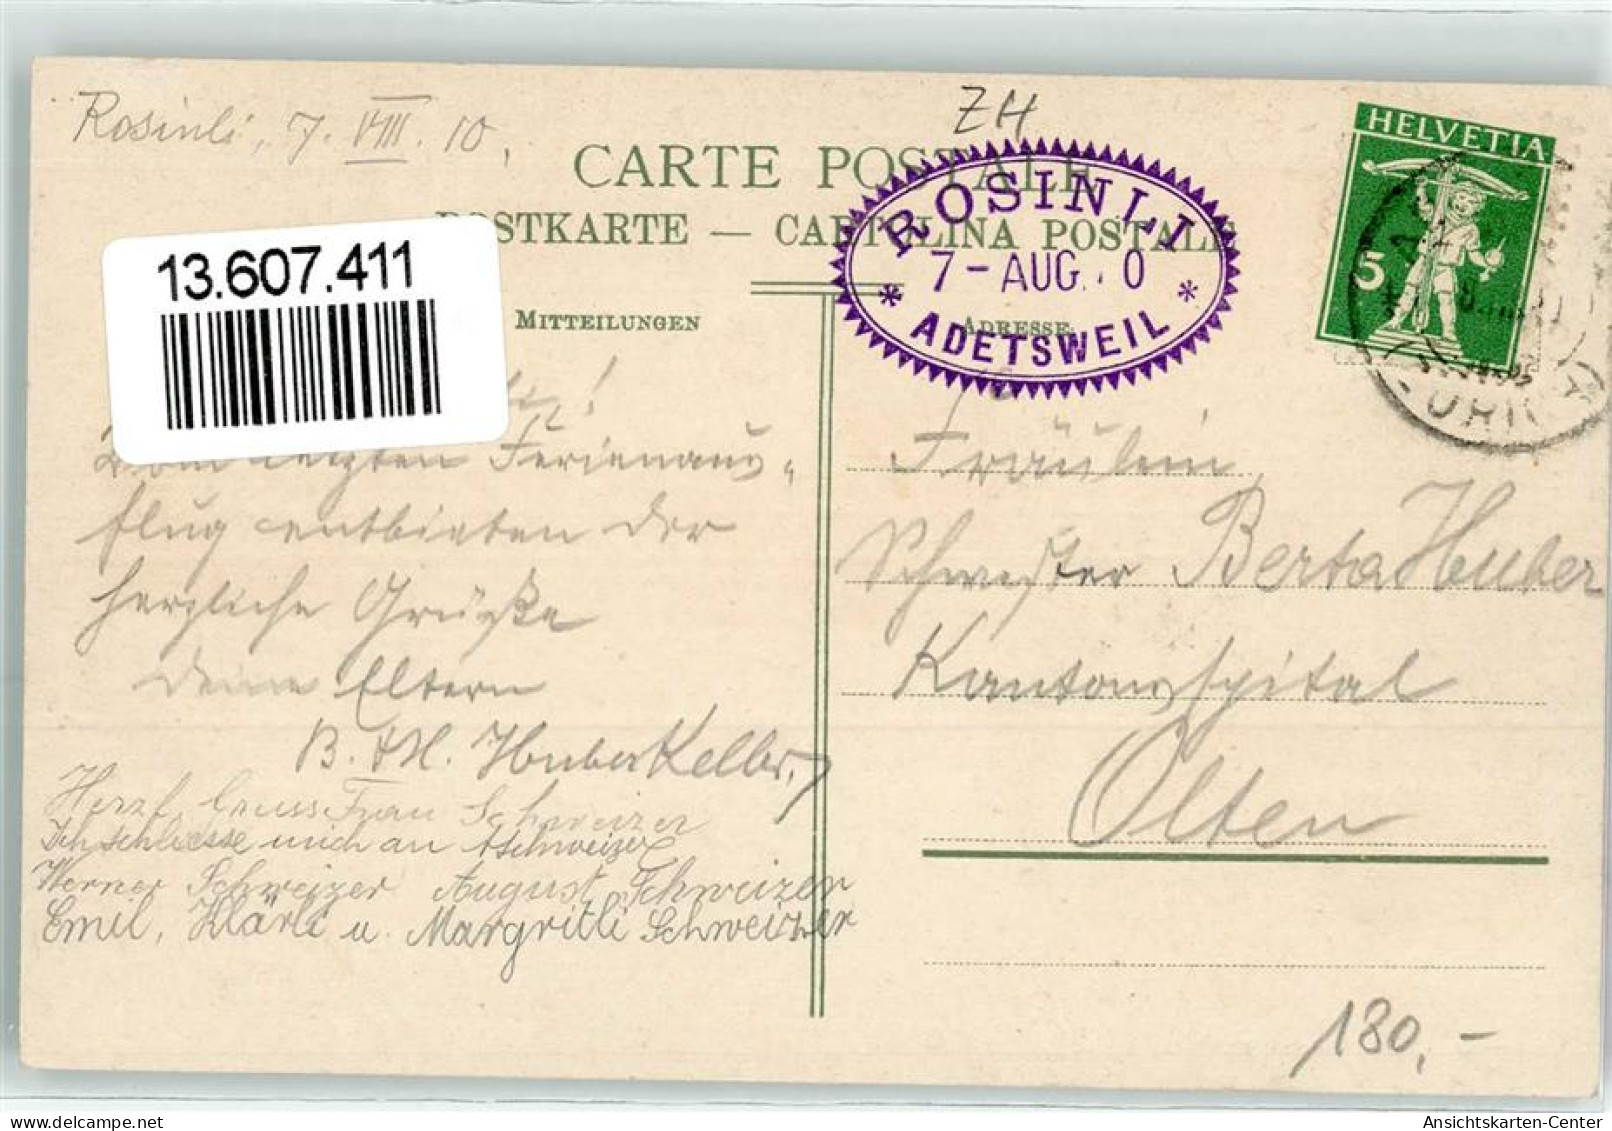 Rosinli, 7. VIII. 10,
ZH
CARTE POSTALE
POSTKARTE — CARTOLINA POSTALE
ROSINLI
7 - AUG. 10
* ADETSWEIL *
HELVETIA
5
13.607.411
MITTEILUNGEN
ADRESSE
letzten Ferienaus-
flug entbieten der
herzliche Grüße
Deine Eltern
B. & H. Huber Keller,
Herzl. Gruss Frau Schweizer
Ich schliesse mich an ASchweizer
Werner Schweizer August Schweizer
Emil, Klärli u. Margritli Schweizer
Fräulein
Schwester Berta Huber
Kantonsspital
Olten
180,-
Ansichtskarten-Center